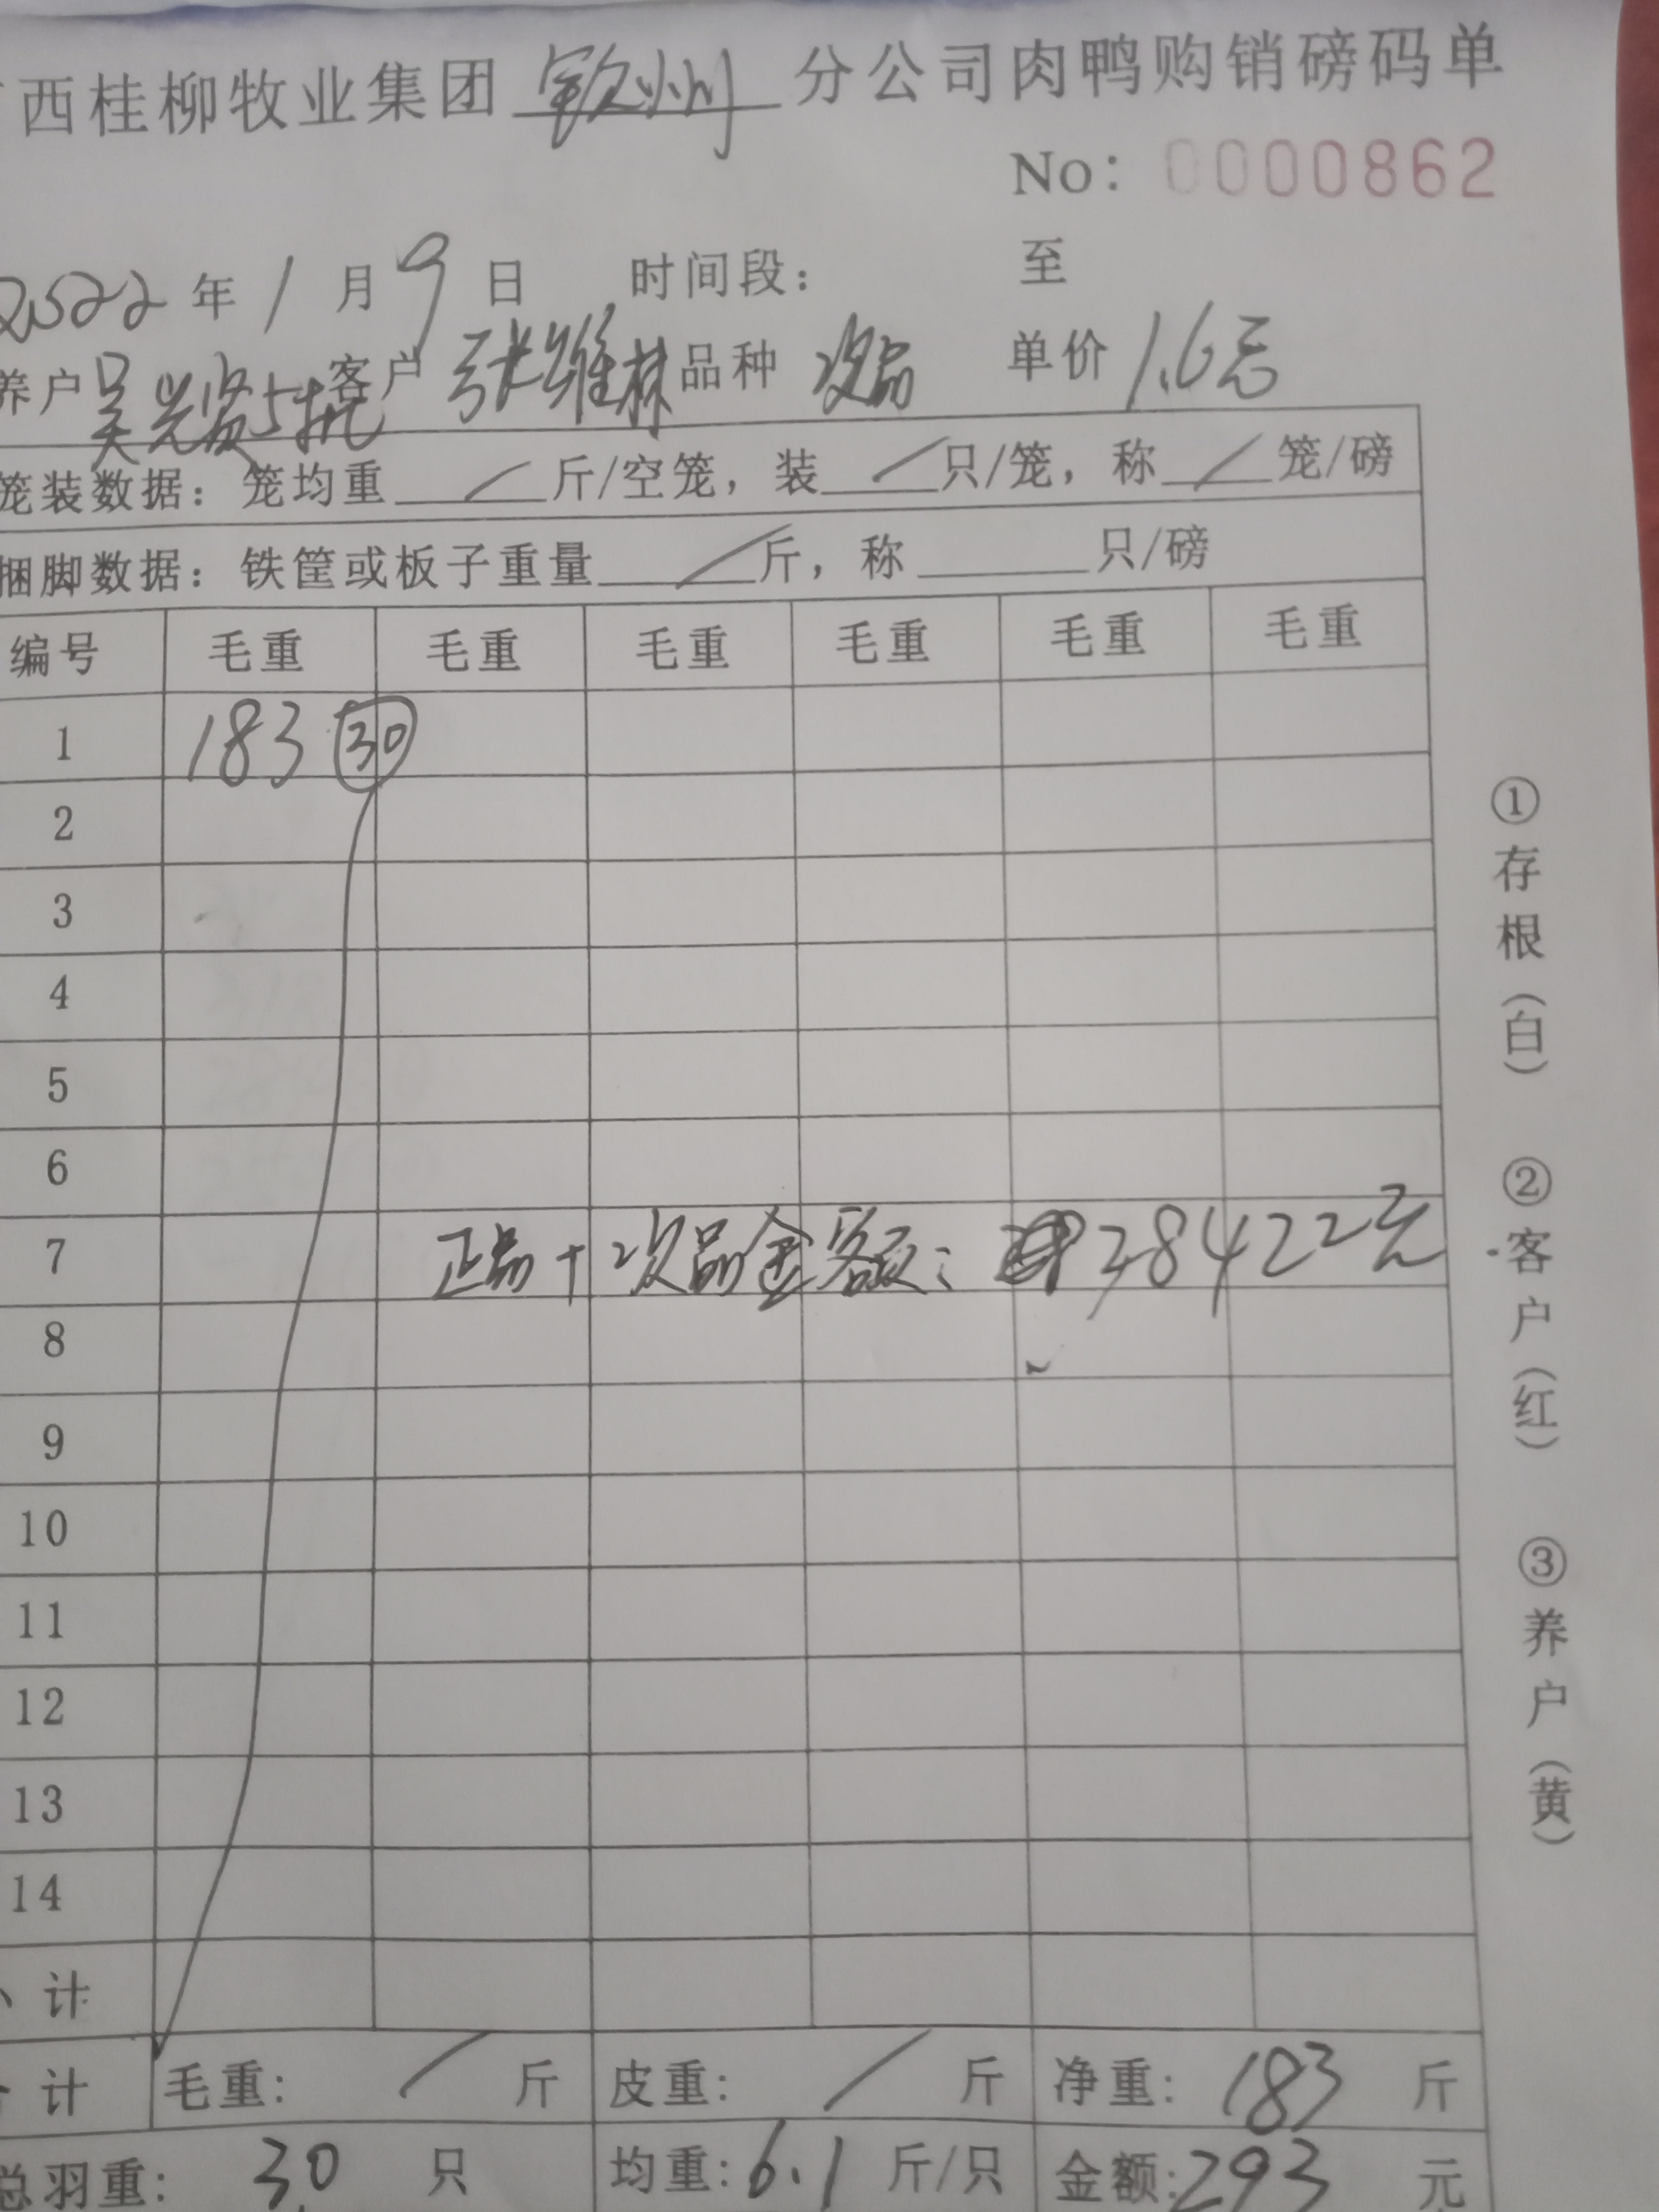 西桂柳牧业集团 钦州 分公司肉鸭购销磅码单
No: 0000862
2022 年 1 月 9 日 时间段: 至
养户 吴光贤5批 客户 张维林 品种 次品 单价 1.6元
笼装数据: 笼均重 / 斤/空笼, 装 / 只/笼, 称 / 笼/磅
捆脚数据: 铁筐或板子重量 / 斤, 称 只/磅
编号 毛重 毛重 毛重 毛重 毛重 毛重
1 183 30
2
3
4
5
6
7 正品+次品金额: 38422元
8
9
10
11
12
13
14
小计
合计 毛重: / 斤 皮重: / 斤 净重: 183 斤
总羽重: 30 只 均重: 6.1 斤/只 金额: 293 元
①存根(白) ②客户(红) ③养户(黄)